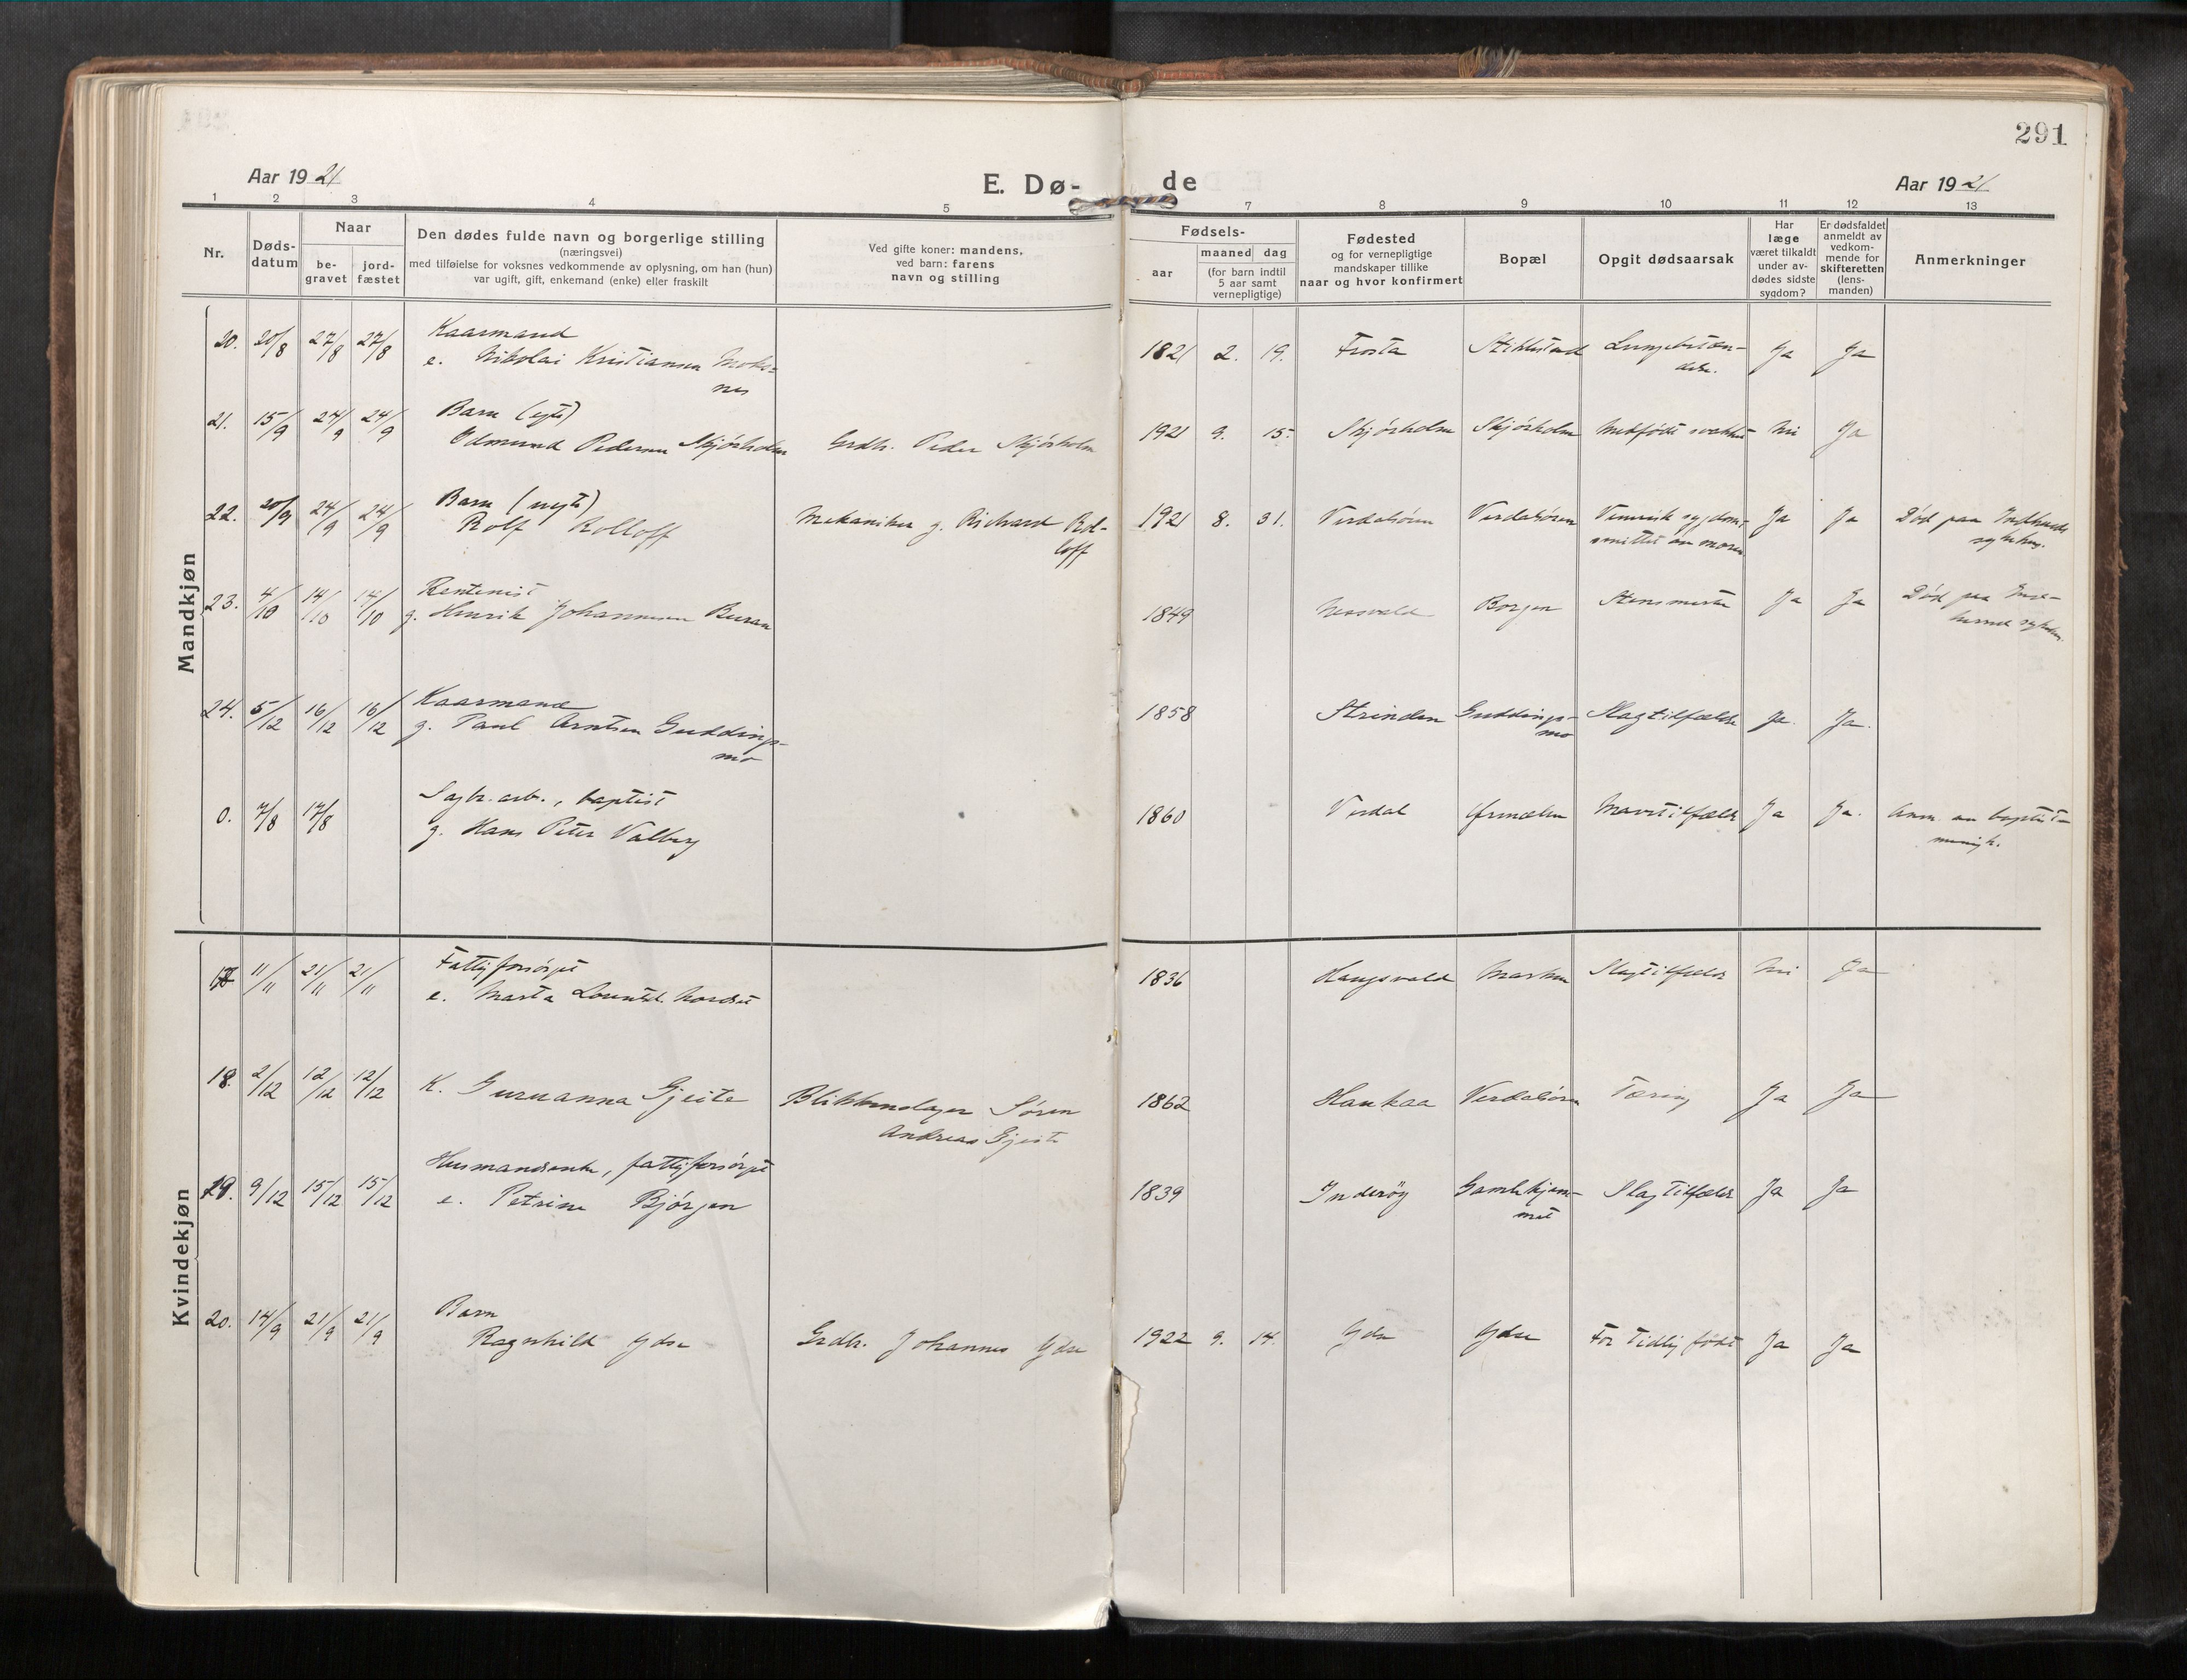 291
Aar 1921
E. Dø-
de
Aar 1921
1 2 3 4 5 7 8 9 10 11 12 13
Nr.
Døds-
datum
Naar
be-
gravet
jord-
fæstet
Den dødes fulde navn og borgerlige stilling
(næringsvei)
med tilføielse for voksnes vedkommende av oplysning, om han (hun)
var ugift, gift, enkemand (enke) eller fraskilt
Ved gifte koner: mandens,
ved barn: farens
navn og stilling
Fødsels-
aar
maaned dag
(for barn indtil
5 aar samt
vernepligtige)
Fødested
og for vernepligtige
mandskaper tillike
naar og hvor konfirmert
Bopæl
Opgit dødsaarsak
Har
læge
været tilkaldt
under av-
dødes sidste
sygdom?
Er dødsfaldet
anmeldt av
vedkom-
mende for
skifteretten
(lens-
manden)
Anmerkninger
Mandkjøn
Kaarmand
20. 20/8 27/8 27/8 e. Nikolai Kristiansen Moks- 1821 2. 19. Frosta Stiklestad Lungebetæn- Ja Ja
nes
delse.
Barn (egte)
21. 15/9 24/9 24/9 Odmund Pedersen Skjørholm Grdbr. Peder Skjørholm 1921 9. 15. Skjørholm Skjørholm Medfødt svakhet Nei Ja
Barn (uegte)
22. 20/9 24/9 24/9 Rolf Rolloff Mekaniker g. Richard Rol- 1921 8. 31. Verdalsøren Verdalsøren Venerisk sygdom, Ja Ja Død paa Indherreds
loff
smittet av moren
sykehus.
Rentenist
23. 4/10 14/10 14/10 g. Henrik Johannesen Buran 1849 Borgen Ja Ja Død paa
Kaarmand
24. 5/12 16/12 16/12 g. Paul Arntsen Guddings- 1858 Strinden Guddings- Slagtilfælde Ja. Ja.
mo
mo
Sagbr. arb., baptist
0. 7/8 17/8 g. Hans Peter Valberg 1860 Verdal Ørmelen Mavetilfælde Ja Ja. Anm. av baptist-
menigh.
Kvindekjøn
Fattigforsørget
17 11/11 21/11 21/11 e. Marta 1836 Slagtilfælde Nei Ja
18. 2/12 12/12 12/12 K. Guruanna Gjeite Blikkenslager Søren 1862 Haukaa Verdalsøren Tæring Ja Ja
Andreas Gjeite
Husmandsenke, fattigforsørget
19. 9/12 15/12 15/12 e. Petrine Bjørgen 1839 Inderøy Gamlehjem- Slagtilfælde Ja Ja
met
Barn
20. 14/9 21/9 21/9 Ragnhild Ydse Grdbr. Johannes Ydse 1922 9. 14. Ydse Ydse For tidlig født Ja Ja